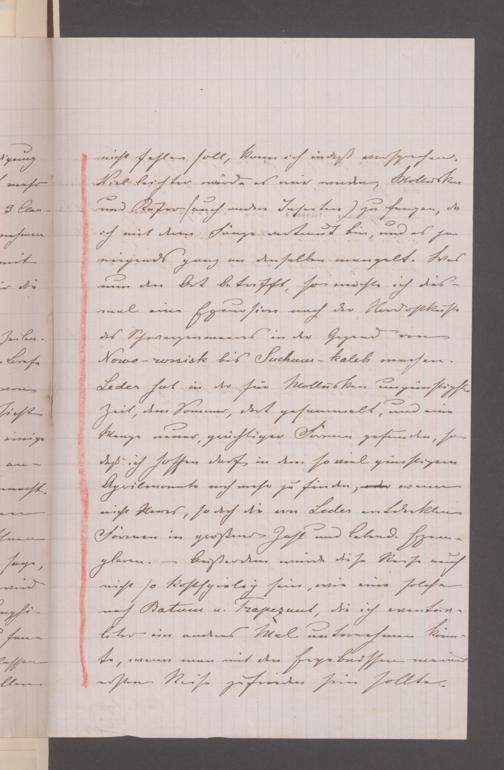 nicht fehlen soll, kann ich indeß versprechen.
Viel leichter würde es mir werden, Mollusken
und Käfer (auch andere Insecten) zu fangen, da
ich mit dem Fange vertraut bin, und es ja
nirgends ganz an denselben mangelt. Was
nun den Ort betrifft, so möchte ich dies-
mal eine Excursion nach der Nordostküste
des Schwarzenmeeres in der Gegend von
Nowo-rossisk bis Suchum-kaleh machen.
Leder hat in der für Mollusken ungünstigsten
Zeit, dem Sommer, dort gesammelt, und eine
Menge neuer, prächtiger Formen gefunden, so
daß ich hoffen darf, in dem so viel günstigeren
Aprilmonate noch mehr zu finden, wenn
nicht Neues, so doch die von Leder entdeckten
Formen in großer Zahl und lebend. Exem-
plaren. — Außerdem würde diese Reise auch
nicht so kostspielig sein, wie eine solche
nach Batum u. Trapezunt, die ich eventuel-
ein anderes Mal unternehmen könn-
te, wenn man mit den Ergebnissen meiner
ersten Reise zufrieden sein sollte.